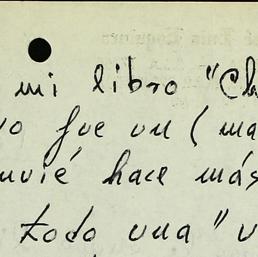 mi libro "Ch
vo fue un (ma
nvié hace más
todo una "v